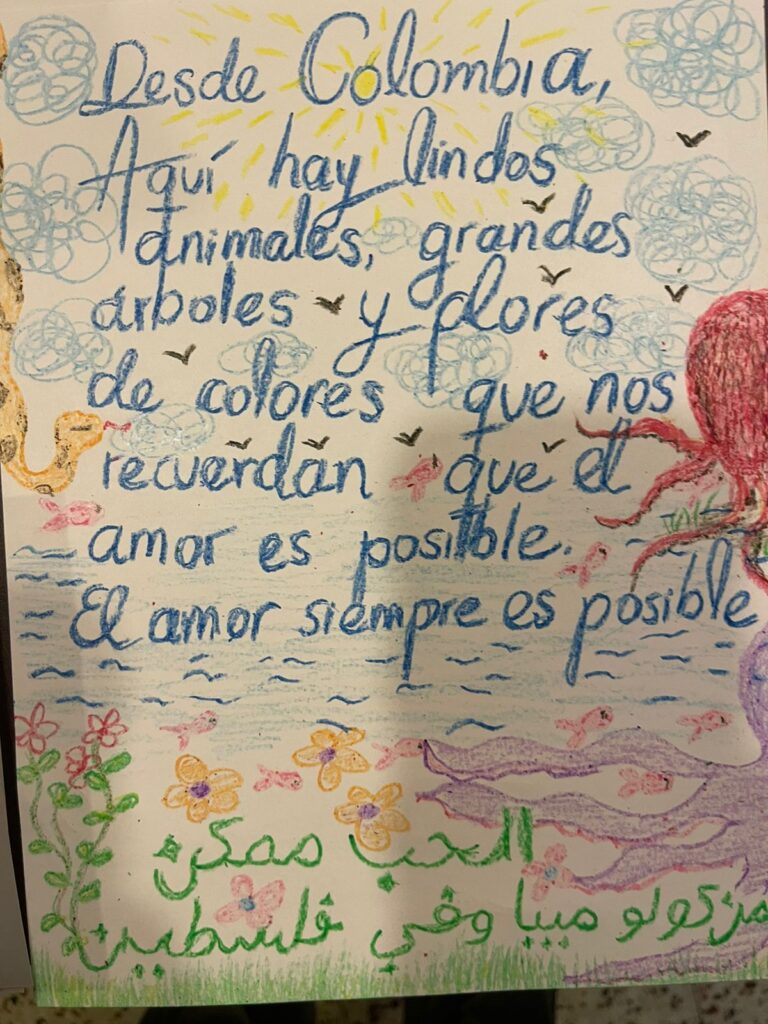 Desde Colombia,
Aquí hay lindos
animales, grandes
arboles y plores
de colores que nos
recuerdan que el
amor es positble.
El amor siempre es posible
الحب ممكن
من كولو مبيا وفي فلسطين